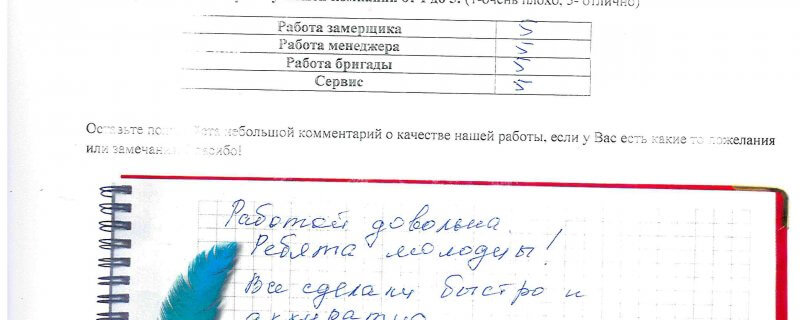 компании от 1 до 5. (1-очень плохо, 5- отлично)
Работа замерщика 5
Работа менеджера 5
Работа бригады 5
Сервис 5
Оставьте небольшой комментарий о качестве нашей работы, если у Вас есть какие то пожелания
или замечания
Работой довольна.
Ребята молодцы!
Все сделали быстро и
аккуратно